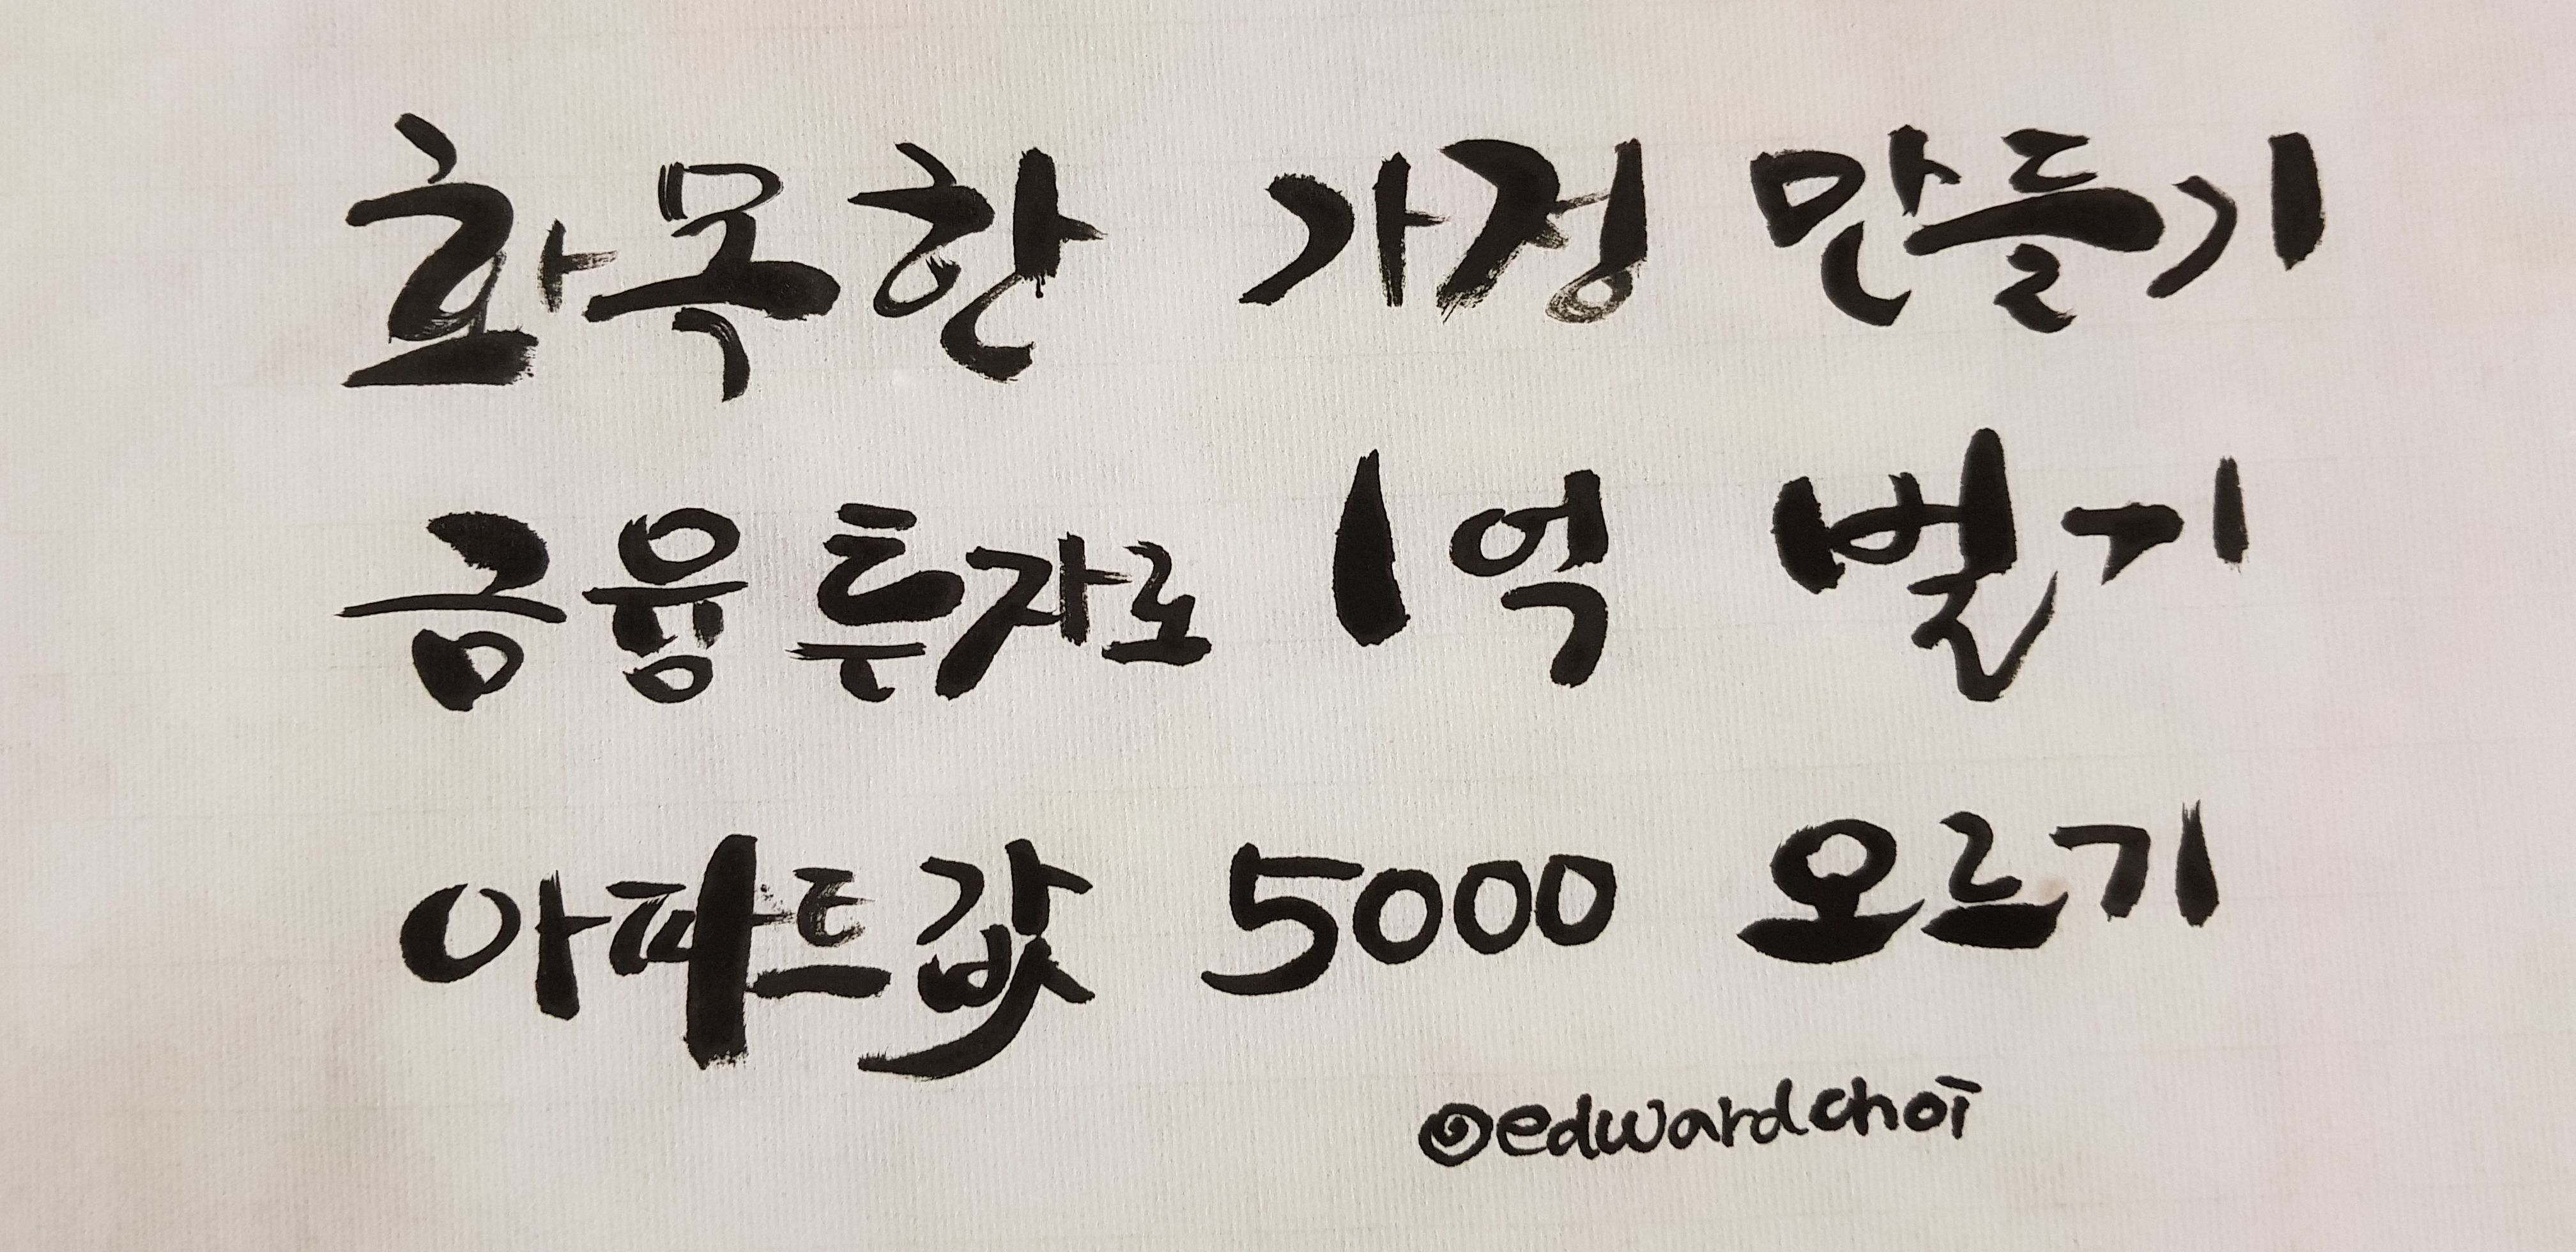 화목한 가정 만들기
금융투자로 1억 벌기
아파트값 5000 오르기
@edwardchoi